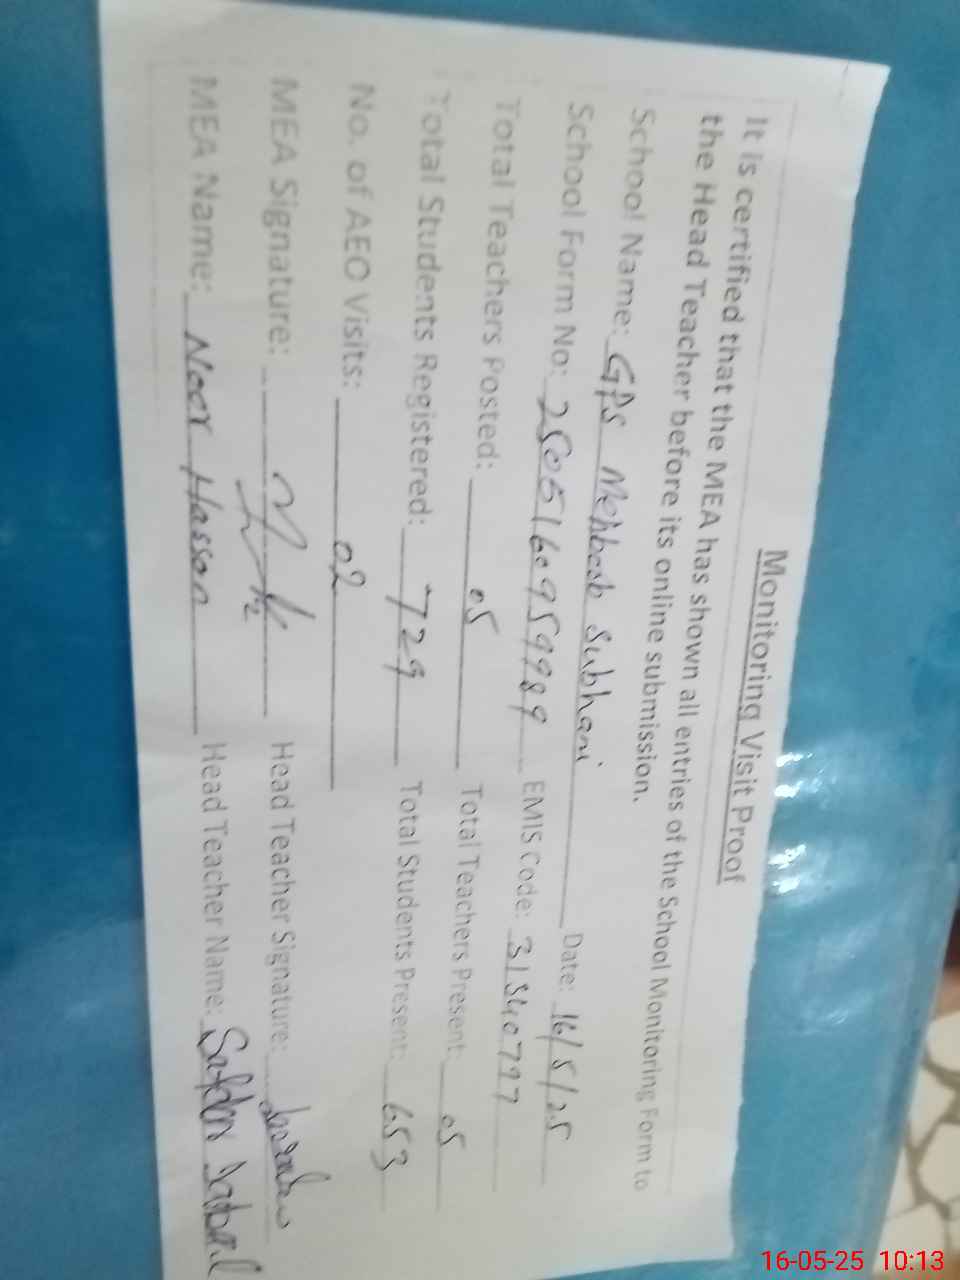 Monitoring Visit Proof
It is certified that the MEA has shown all entries of the School Monitoring Form to
the Head Teacher before its online submission.
School Name: GPS Mehboob Subhani Date: 16/5/25
School Form No: 2505160959989 EMIS Code: 31340797
Total Teachers Posted: 05 Total Teachers Present: 05
Total Students Registered: 729 Total Students Present: 653
No. of AEO Visits: 02
MEA Signature: Head Teacher Signature:
MEA Name: Noor Hassan Head Teacher Name: Safdar
16-05-25 10:13